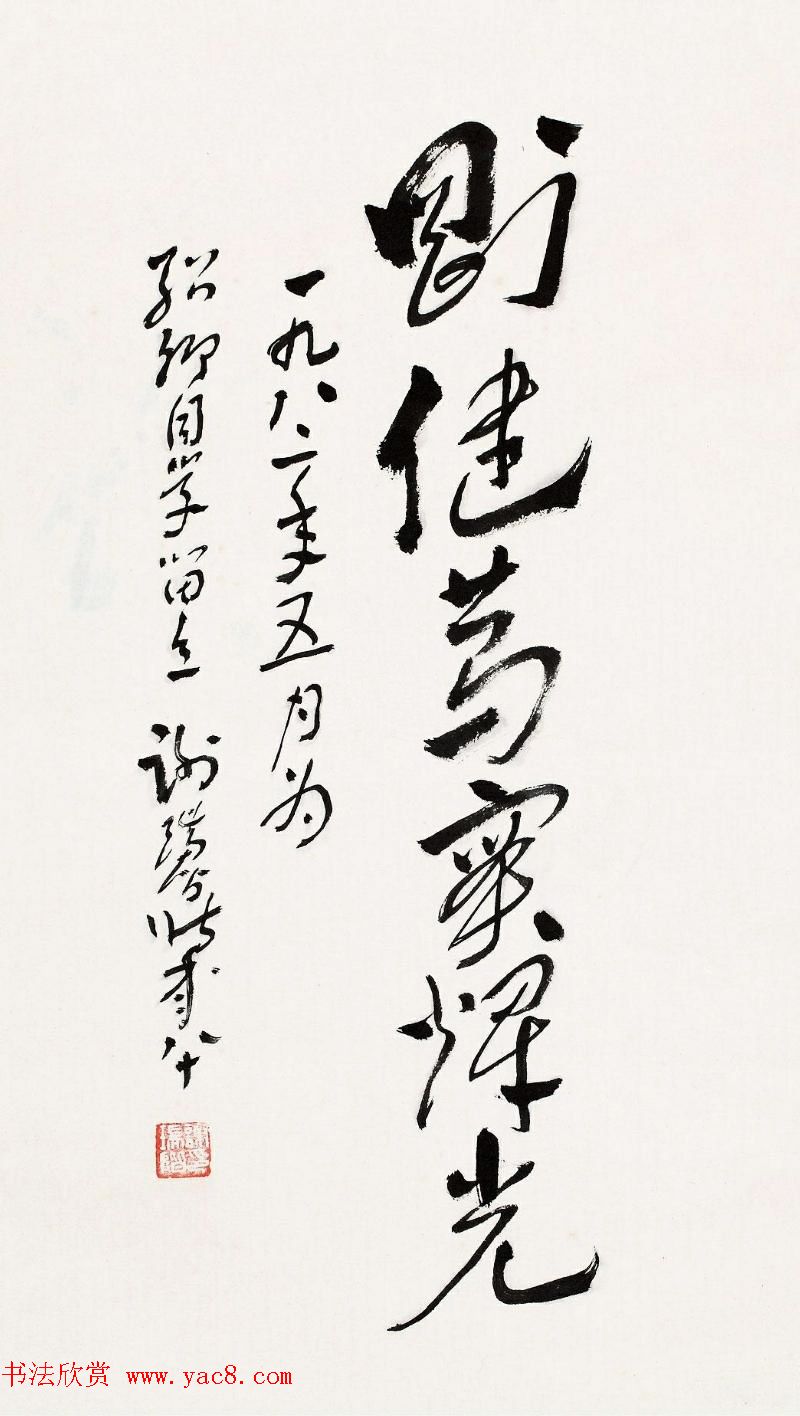 刚健笃实辉光
一九八二年五月为
韶卿同学留念 谢瑞阶时年八十
谢瑞阶印
书法欣赏 www.yac8.com